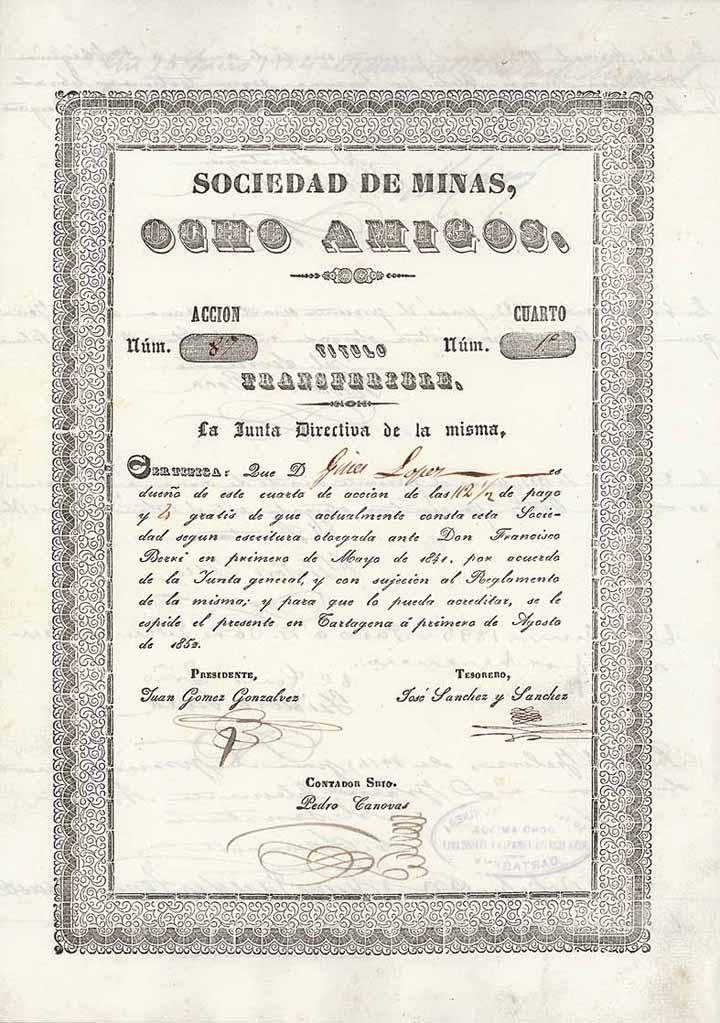 SOCIEDAD DE MINAS,
OCHO AMIGOS.
ACCION CUARTO
Núm. 8.ª TITULO Núm. 1.º
TRANSFERIBLE.
La Junta Directiva de la misma,
CERTIFICA: Que D Gines Lopez es
dueño de este cuarto de accion de las 112 1/2 de pago
y 2 gratis de que actualmente consta esta Socie-
dad segun escritura otorgada ante Don Francisco
Berri en primero de Mayo de 1841, por acuerdo
de la Junta general, y con sujecion al Reglamento
de la misma; y para que lo pueda acreditar, se le
espide el presente en Cartagena á primero de Agosto
de 1852.
PRESIDENTE, TESORERO,
Juan Gomez Gonzalvez José Sanchez y Sanchez
CONTADOR SRIO.
Pedro Canovas
OCHO AMIGOS
CARTAG